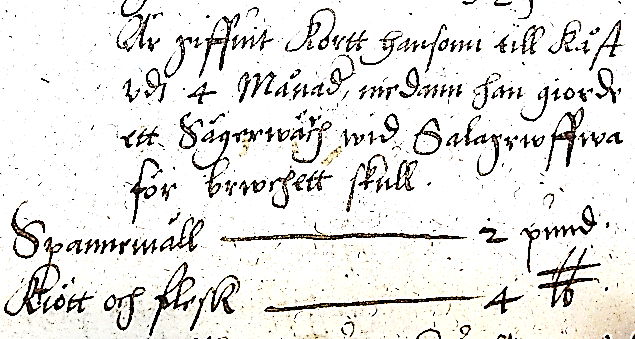 Är giffuit Kortt hansonn till Kåst
vdi 4 Månad, medann han giorde
ett Sägerwäch wid Salagrwffwa
för brwchett skull.
Spannemåll 2 pund.
Kiött och flesk 4 lb.